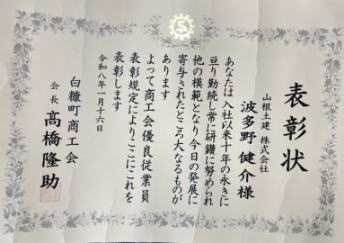 表彰状
山根土建 株式会社
波多野 健介様
あなたは入社以来十年の永きに
亘り勤続し常に研鑽に努められ
他の模範となり今日の発展に
寄与されたところ大なるものが
あります
よって商工会優良従業員
表彰規定によりここにこれを
表彰します
令和八年一月十六日
白糠町商工会
会長 髙橋隆助